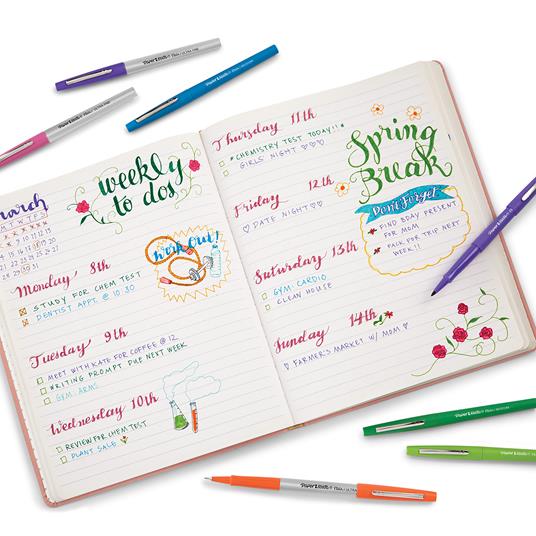 weekly
to dos!
march
M T W T F S
Monday 8th
STUDY FOR CHEM TEST
DENTIST APPT. @ 10:30
Work Out!
Tuesday 9th
MEET WITH KATE FOR COFFEE @ 12
WRITING PROMPT DUE NEXT WEEK
GYM: ARMS
Wednesday 10th
REVIEW FOR CHEM TEST
PLANT SALE
Thursday 11th
*CHEMISTRY TEST TODAY!!*
GIRLS NIGHT ♡♡♡
Friday 12th
♡ DATE NIGHT ♡♡
Saturday 13th
GYM: CARDIO
CLEAN HOUSE
Sunday 14th
♡ FARMER'S MARKET W/ MOM ♡
Spring
Break
Don't Forget
* FIND BDAY PRESENT
FOR MOM
* PACK FOR TRIP NEXT
WEEK!!
Paper Mate
Paper Mate
Paper Mate
Paper Mate
Paper Mate
Paper Mate
Paper Mate